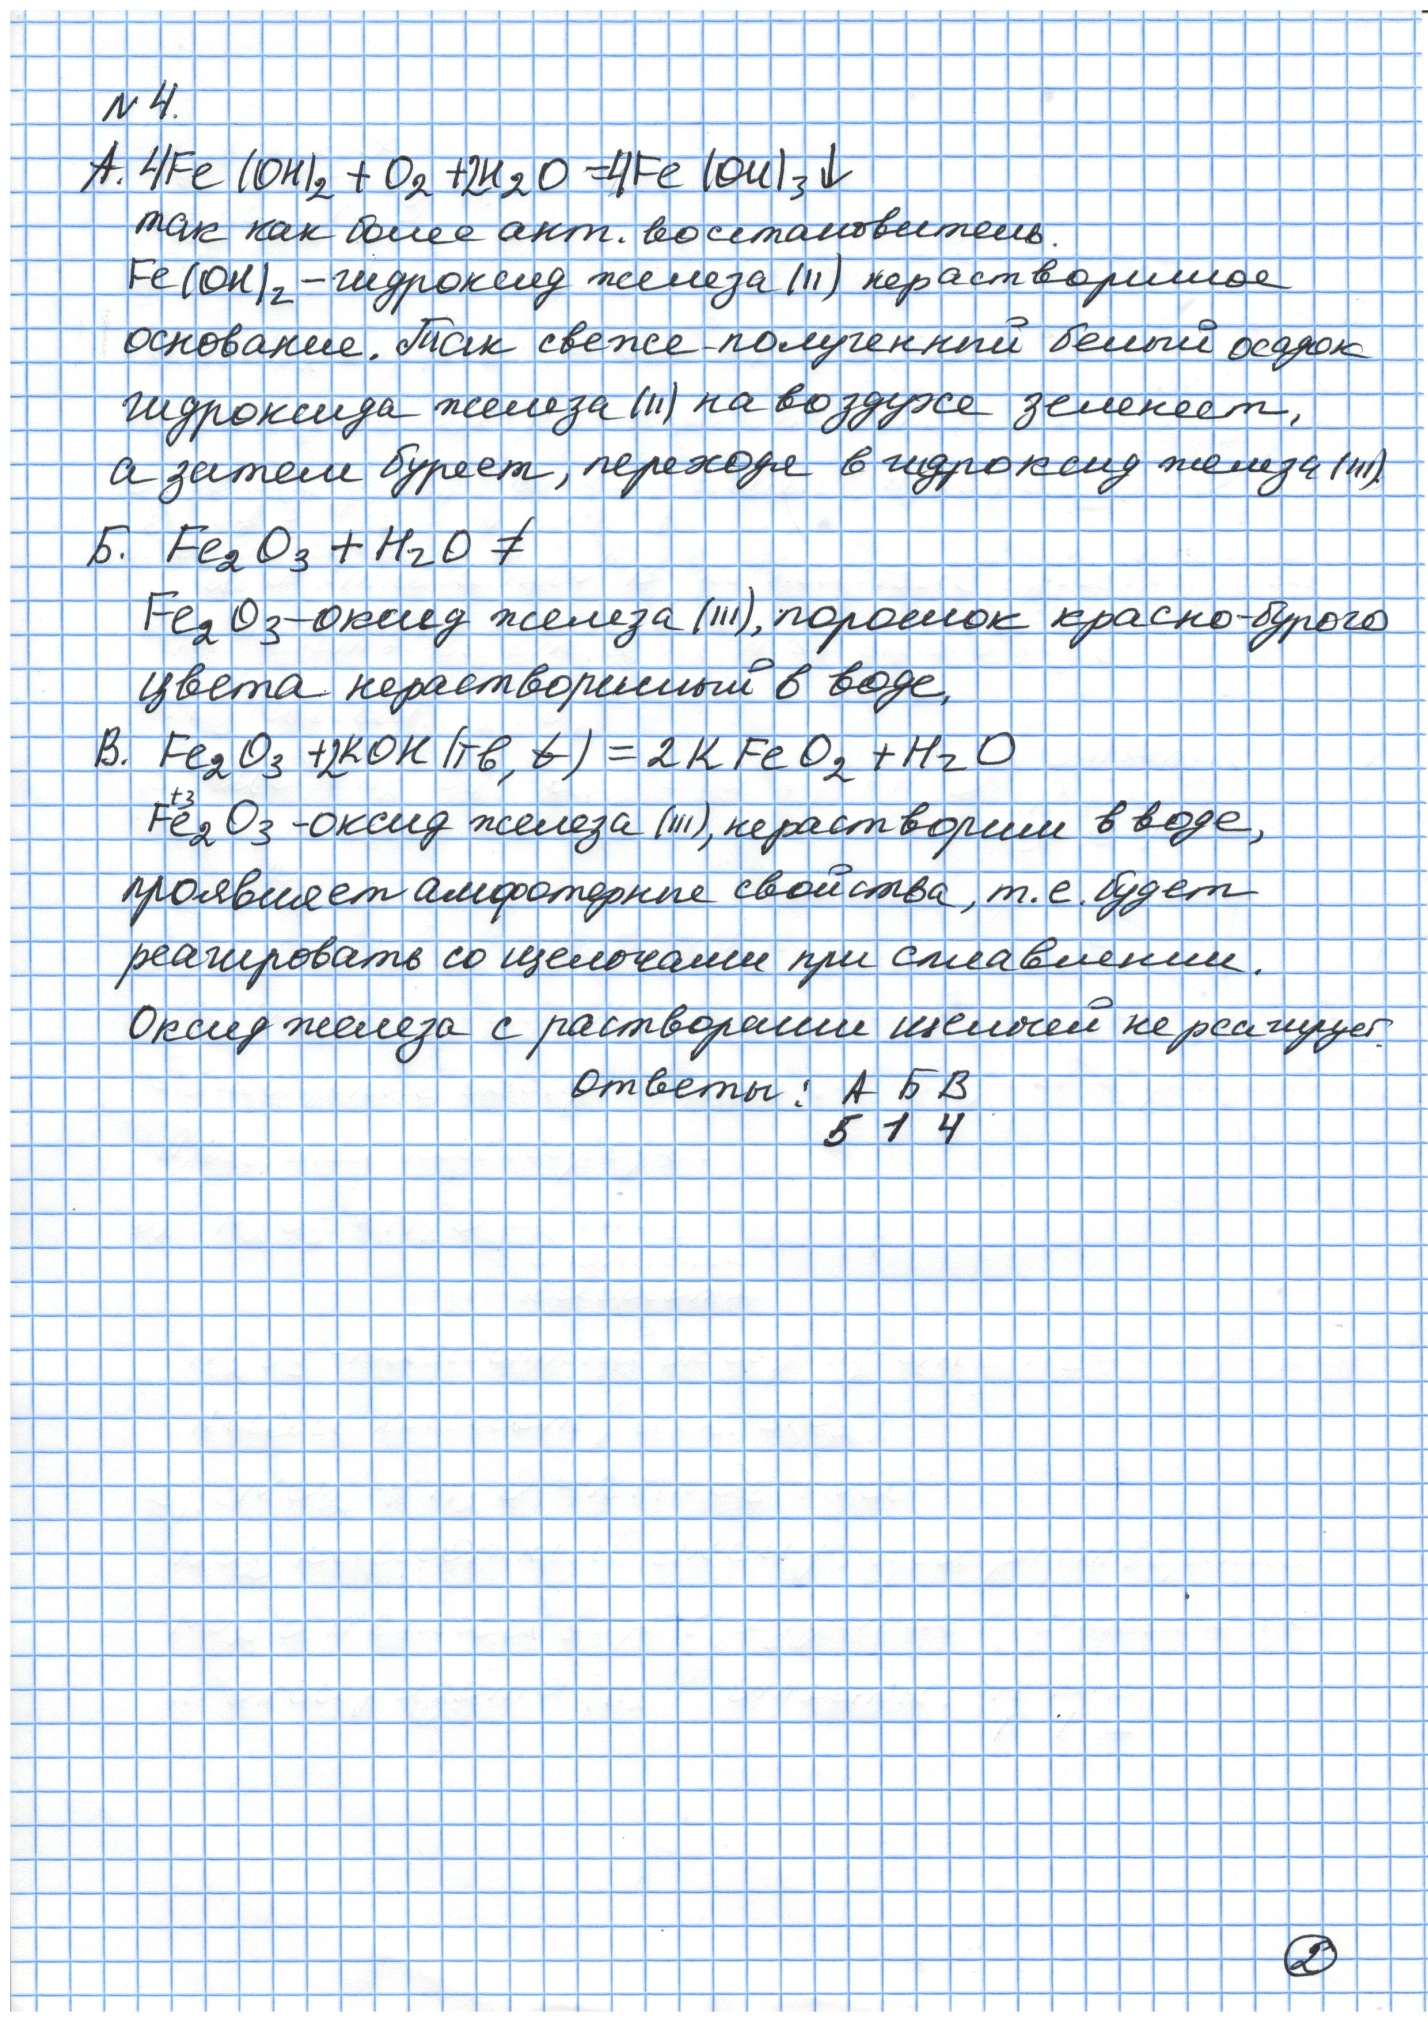 N 4.
А. 4Fe(OH)₂ + O₂ + 2H₂O = 4Fe(OH)₃↓
так как более акт. восстановитель.
Fe(OH)₂ – гидроксид железа (II) нерастворимое
основание. Так свеже-полученный белый осадок
гидроксида железа (II) на воздухе зеленеет,
а затем буреет, переходя в гидроксид железа (III).
Б. Fe₂O₃ + H₂O ≠
Fe₂O₃ – оксид железа (III), порошок красно-бурого
цвета нерастворимый в воде.
В. Fe₂O₃ + 2KOH (тв, t) = 2KFeO₂ + H₂O
Fe⁺³₂O₃ – оксид железа (III), нерастворим в воде,
проявляет амфотерные свойства, т.е. будет
реагировать со щелочами при сплавлении.
Оксид железа с растворами щелочей не реагирует.
Ответы: А Б В
5 1 4
2